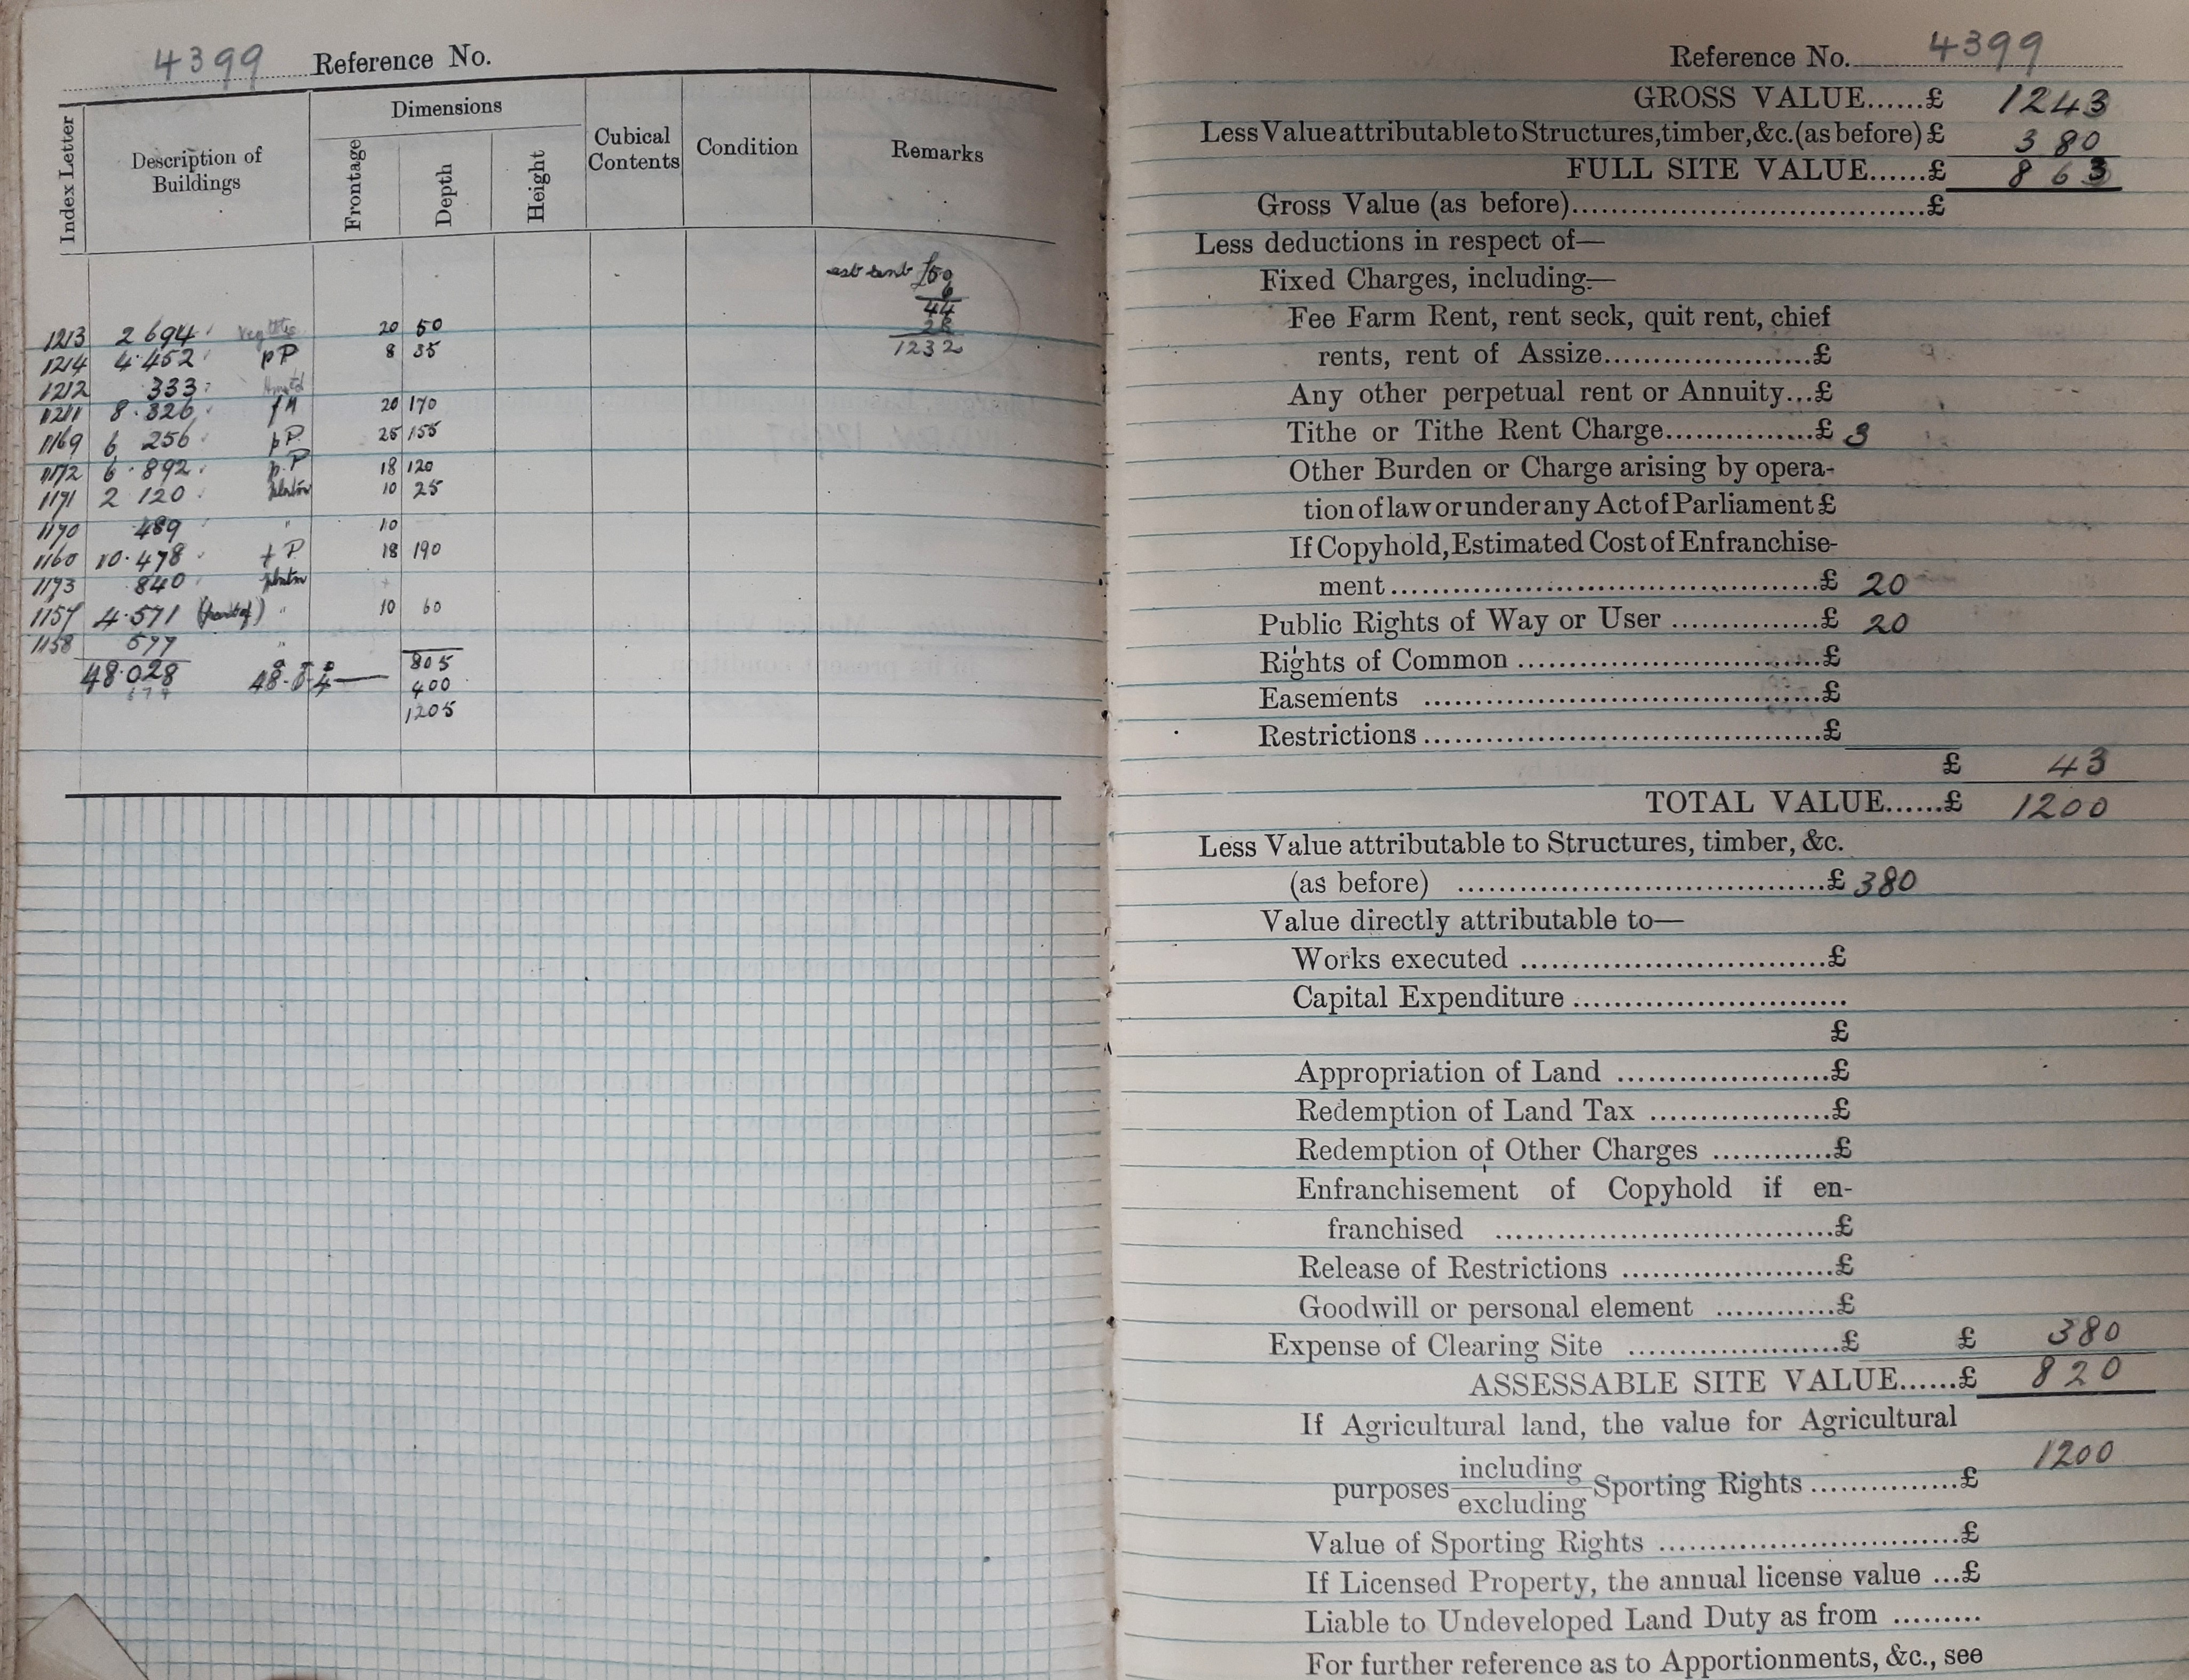 4399 Reference No.
Index Letter
Description of Buildings
Dimensions
Frontage
Depth
Height
Cubical Contents
Condition
Remarks
est rent £50
6
44
28
1232
1213 2 694 20 50
1214 4.452 pP 8 35
1212 333
1211 8.326 20 170
1169 6 256 pP 25 155
1172 6.892 p.P 18 120
1171 2 120 plntn 10 25
1170 489 " 10
1160 10.478 + P 18 190
1173 840 plntn
1157 4.571 (part of) " 10 60
1158 577 "
48.028 805
400
1205
Reference No. 4399
GROSS VALUE......£ 1243
Less Value attributable to Structures, timber, &c. (as before) £ 380
FULL SITE VALUE......£ 863
Gross Value (as before)..........£
Less deductions in respect of—
Fixed Charges, including:—
Fee Farm Rent, rent seck, quit rent, chief
rents, rent of Assize..........£
Any other perpetual rent or Annuity...£
Tithe or Tithe Rent Charge..........£ 3
Other Burden or Charge arising by opera-
tion of law or under any Act of Parliament £
If Copyhold, Estimated Cost of Enfranchise-
ment..........£ 20
Public Rights of Way or User ..........£ 20
Rights of Common ..........£
Easements ..........£
Restrictions ..........£
£ 43
TOTAL VALUE......£ 1200
Less Value attributable to Structures, timber, &c.
(as before) ..........£ 380
Value directly attributable to—
Works executed ..........£
Capital Expenditure ..........
£
Appropriation of Land ..........£
Redemption of Land Tax ..........£
Redemption of Other Charges ..........£
Enfranchisement of Copyhold if en-
franchised ..........£
Release of Restrictions ..........£
Goodwill or personal element ..........£
Expense of Clearing Site ..........£ £ 380
ASSESSABLE SITE VALUE......£ 820
If Agricultural land, the value for Agricultural
purposes including/excluding Sporting Rights ..........£ 1200
Value of Sporting Rights ..........£
If Licensed Property, the annual license value ...£
Liable to Undeveloped Land Duty as from .........
For further reference as to Apportionments, &c., see